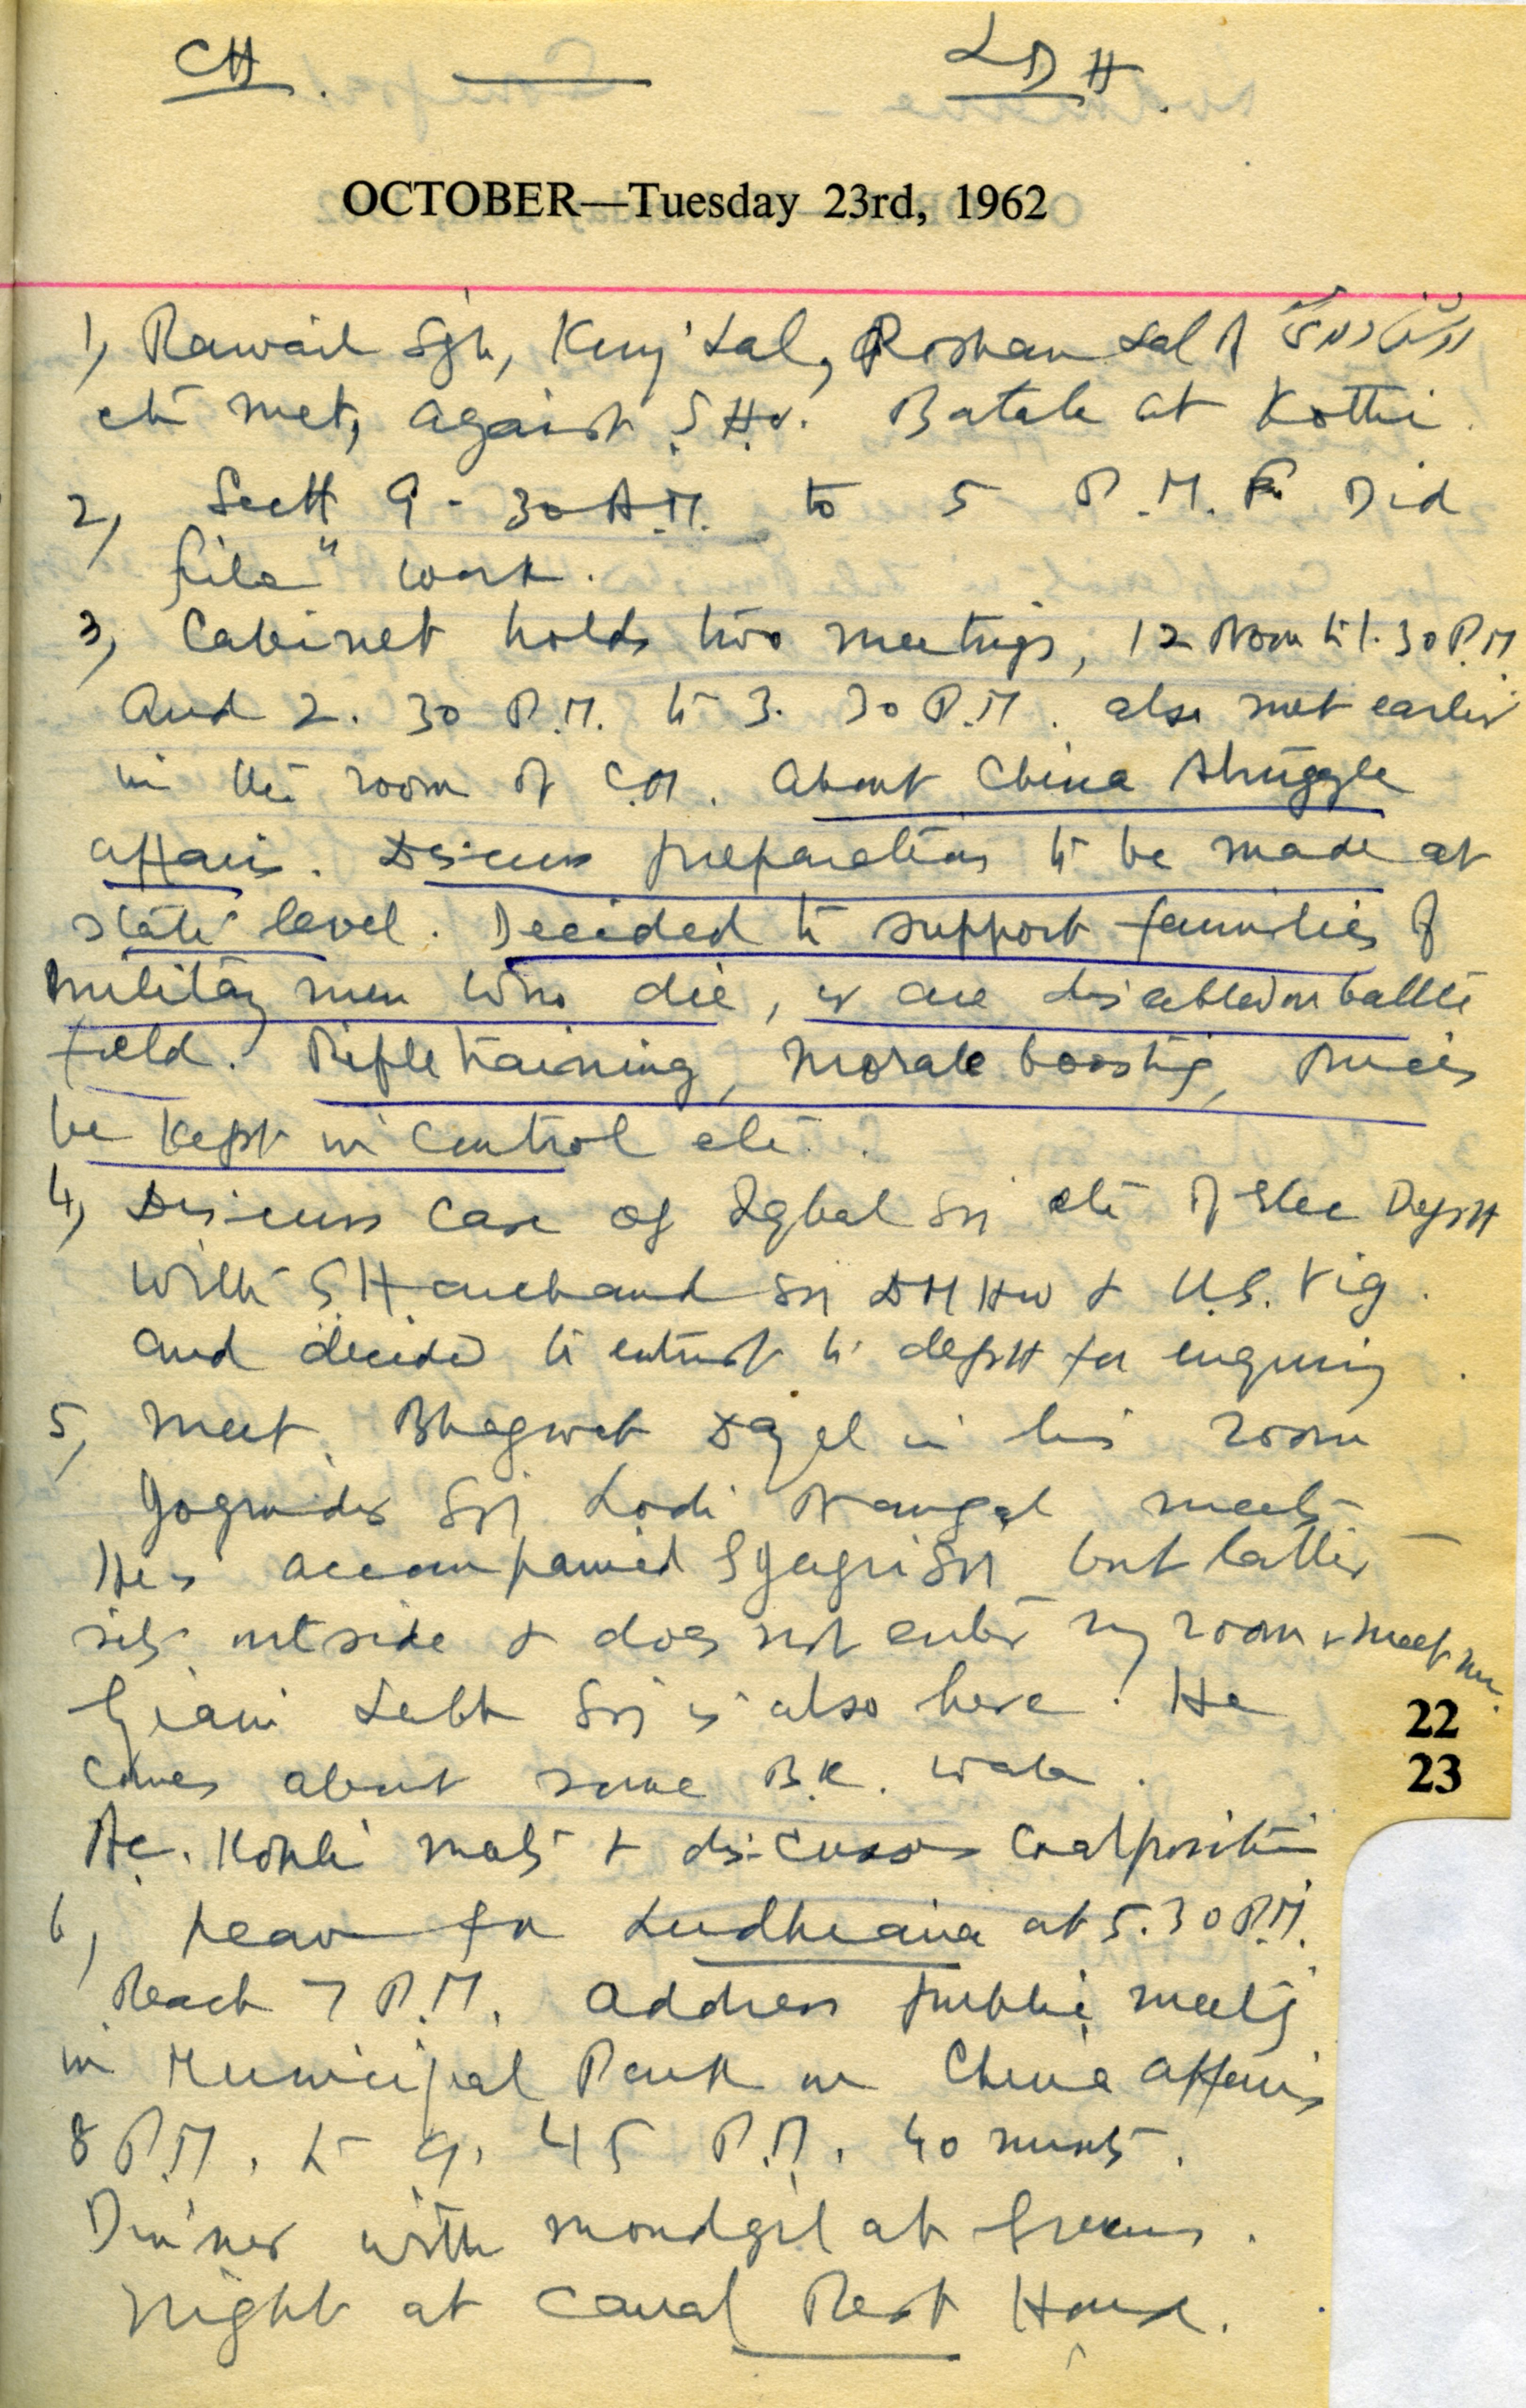 CH. — LDH.
OCTOBER—Tuesday 23rd, 1962
1, Rawail Sgh, Kunj Lal, Roshan Lal of
etc met, against S.H.O. Batala at Kothi.
2, Sectt 9-30 A.M. to 5 P.M. Did
file work.
3, Cabinet holds two meetings, 12 Noon to 1.30 P.M
and 2.30 P.M. to 3.30 P.M. also met earlier
in the room of C.M. About China struggle
affairs. Discuss preparations to be made at
state level. Decided to support families of
military men who die, or are disabled in battle
field. Rifle training, Morale boosting, prices
be kept in control etc.
4, Discuss case of Iqbal Sn etc of Elec Deptt
with S Harchand Sn DM HW & U.S. Vig.
and decide to entrust to deptt for enquiry.
5, Meet Bhagwat Dayal in his room
Joginder Sn Lodi Nangal meets
He is accompanied S Jagir Sn but latter
sits outside & does not enter my room & meet me.
Giani Labh Sn is also here. He
comes about some B.K. wala.
Kohli meets & discusses Coal position
6, Leave for Ludhiana at 5.30 P.M.
Reach 7 P.M. Address public meetg
in Municipal Park on China affairs
8 P.M. to 9.45 P.M. 40 munts.
Dinner with Mondgil at Greens.
Night at Canal Rest House.
22
23